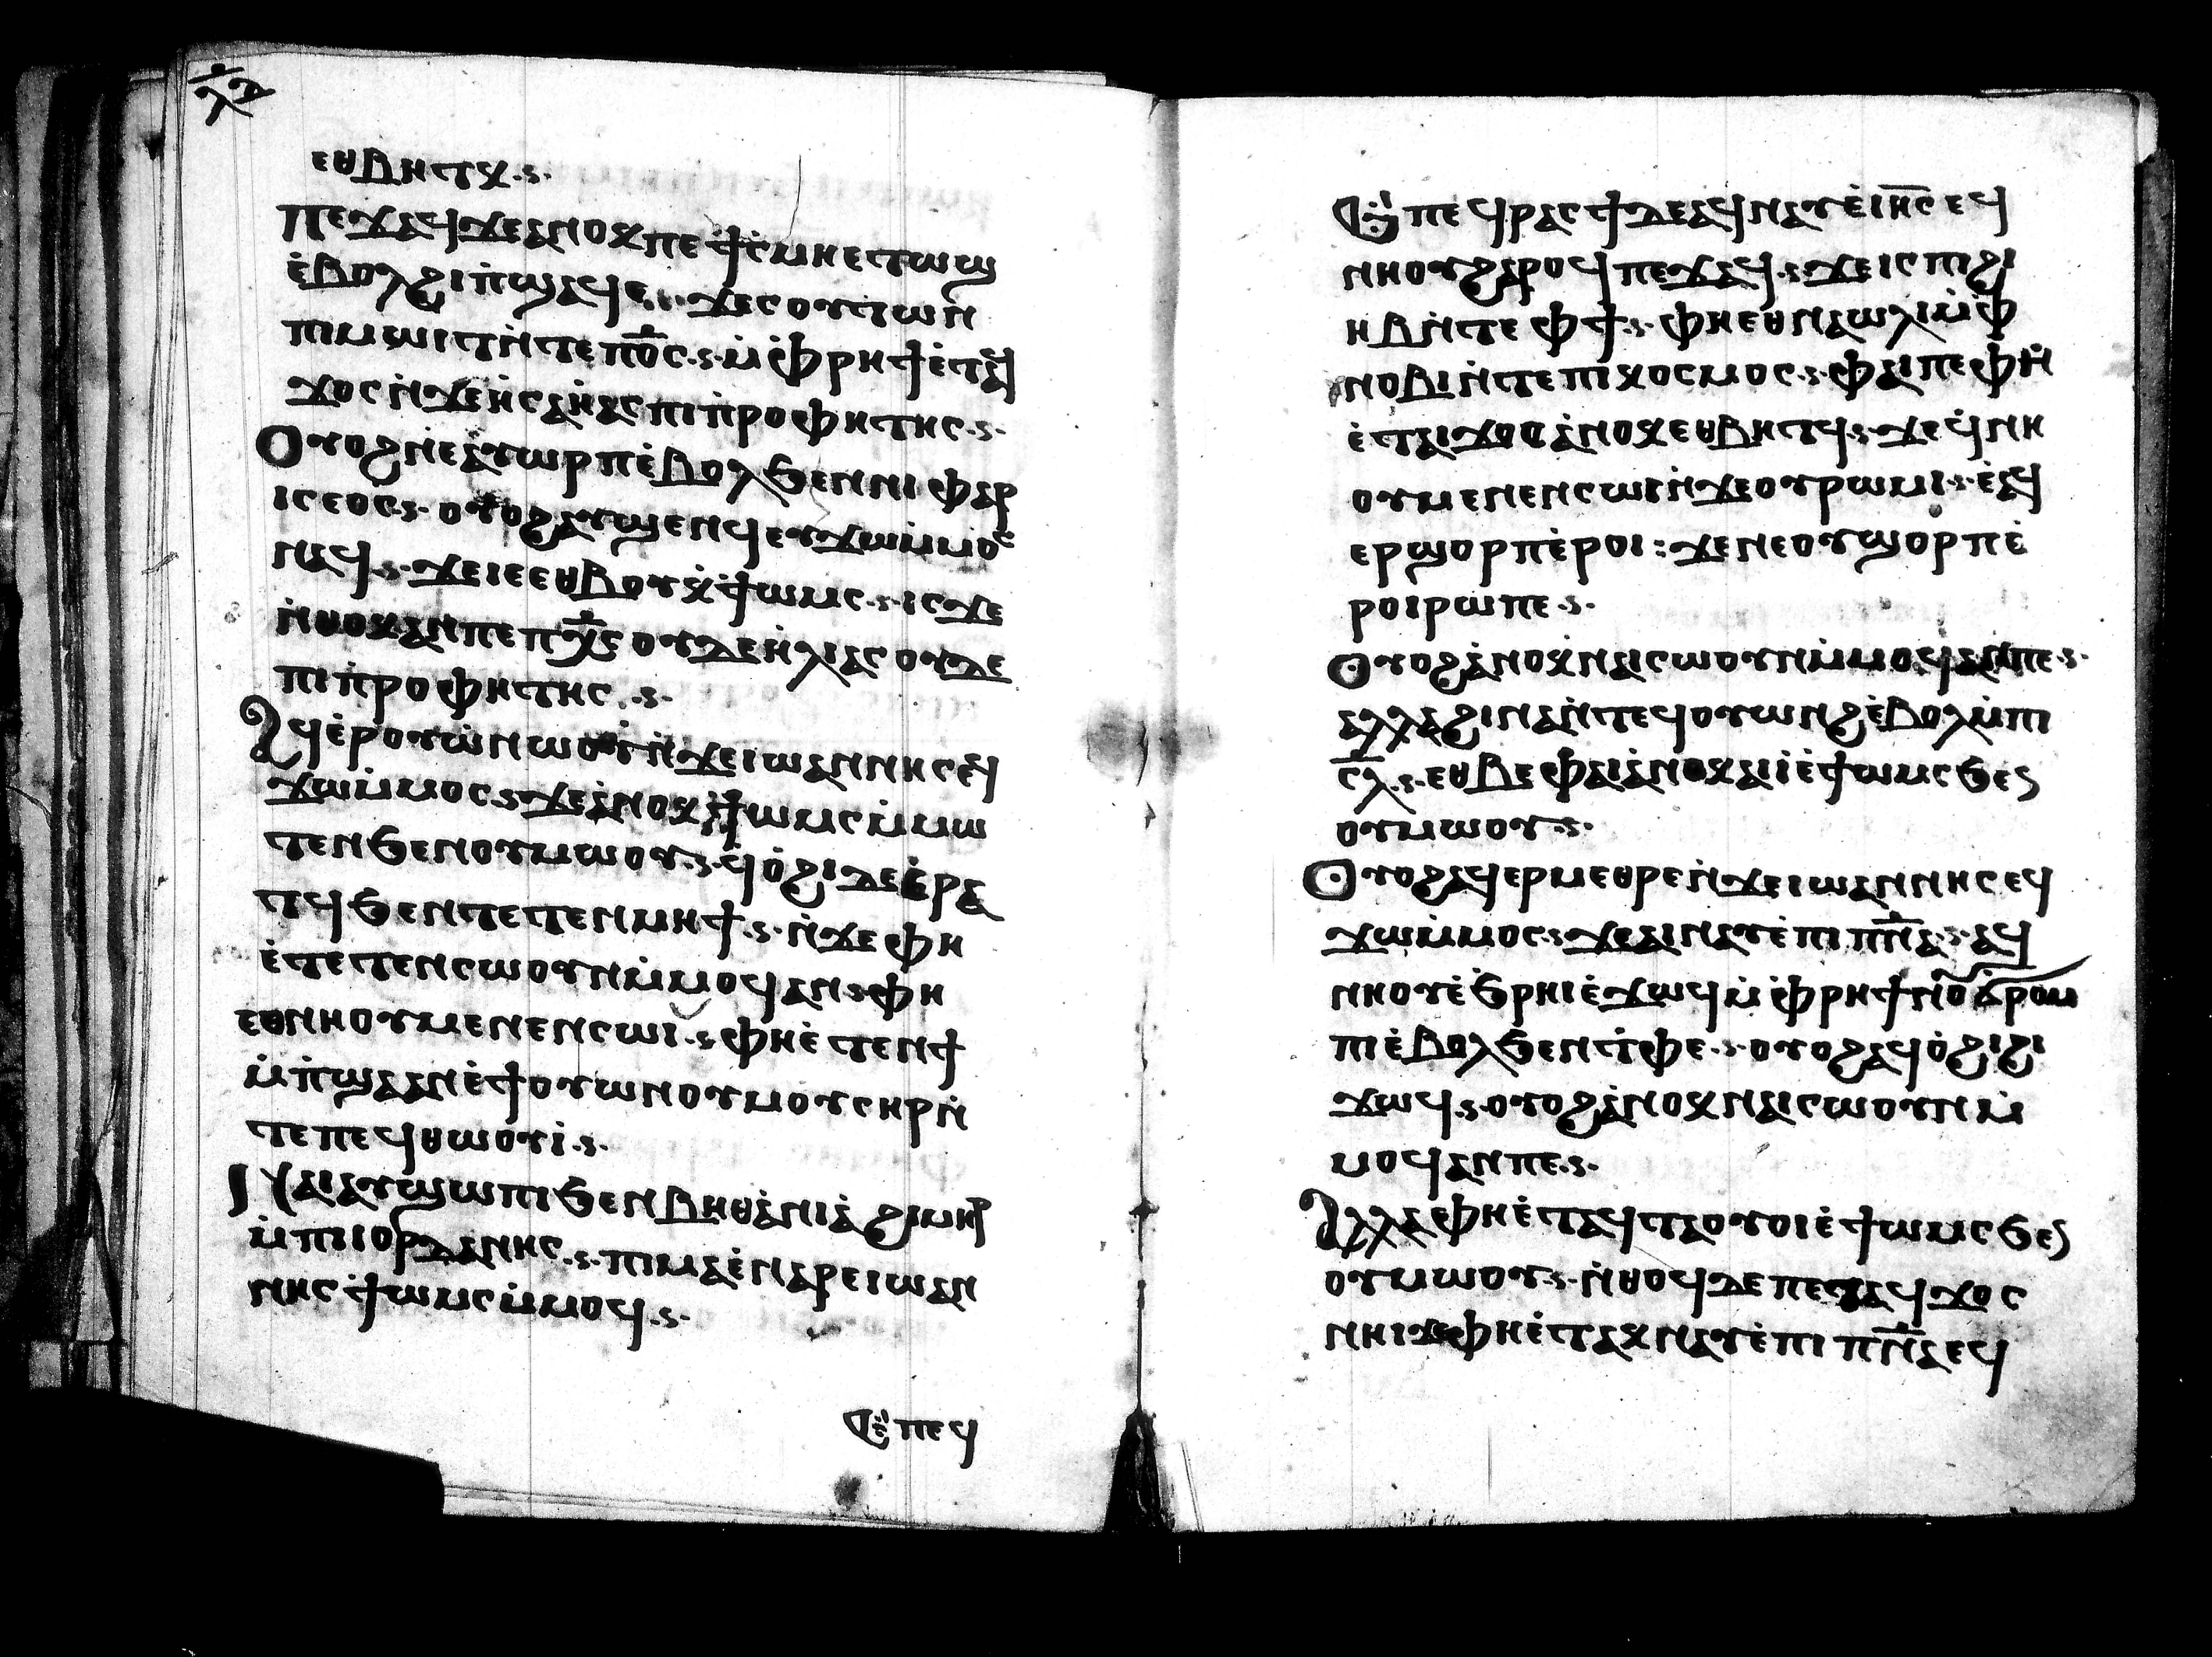 ⲗⲁ
ⲉⲑⲃⲏⲧⲕ·ⲋ·
ⲡⲉϫⲁϥϫⲉⲁⲛⲟⲕⲡⲉϯⲥ̀ⲙⲏⲉⲧⲱϣ
ⲉ̀ⲃⲟⲗϩⲓⲡ̀ϣⲁϥⲉ·ϫⲉⲥⲟⲩⲧⲱⲛ
ⲡⲓⲙⲱⲓⲧⲛ̀ⲧⲉⲡⲟ̅ⲥ·ⲋ·ⲙ̀ⲫ̀ⲣⲏϯⲉ̀ⲧⲁϥ
ϫⲟⲥⲛ̀ϫⲉⲏ̀ⲥⲁⲏ̀ⲁⲥⲡⲓⲡ̀ⲣⲟⲫⲏⲧⲏⲥ·ⲋ·
ⲟⲩⲟϩⲛⲉⲁⲩⲟⲩⲱⲣⲡⲉ̀ⲃⲟⲗϧⲉⲛⲛⲓⲫⲁⲣ
ⲓⲥⲉⲟⲥ·ⲋ·ⲟⲩⲟϩⲁⲩϣⲉⲛϥⲉⲩϫⲱⲙ̀ⲙⲟⲥ
ⲛⲁϥ·ⲋ·ϫⲉⲓⲉⲉⲑⲃⲟⲩⲕ̀ϯⲱⲙⲥ·ⲋ·ⲓⲥϫⲉ
ⲛ̀ⲑⲟⲕⲁⲛⲡⲉⲡⲭ̅ⲥⲟⲩⲇⲉⲏ̀ⲗⲓⲁⲥⲟⲩⲇⲉ
ⲡⲓⲡ̀ⲣⲟⲫⲏⲧⲏⲥ·ⲋ·
ⲁϥⲉ̀ⲣⲟⲩⲱ̀ⲛⲱⲟⲩⲛ̀ϫⲉⲓⲱⲁⲛⲛⲏⲥⲉϥ
ϫⲱⲙ̀ⲙⲟⲥ·ⲋ·ϫⲉⲁ̀ⲛⲟⲕϯⲱⲙⲥⲙ̀ⲙⲱ
ⲧⲉⲛϧⲉⲛⲟⲩⲙⲱⲟⲩ·ⲋ·ϥ̀ⲟ̀ϩⲓⲇⲉⲉ̀ⲣⲁ
ⲧϥϧⲉⲛⲧⲉⲧⲉⲛⲙⲏϯ·ⲋ·ⲛ̀ϫⲉⲫⲏ
ⲉ̀ⲧⲉⲧⲉⲛⲥⲱⲟⲩⲛⲙ̀ⲙⲟϥⲁⲛ·ⲋⲫⲏ
ⲉⲑⲛⲏⲟⲩⲙⲉⲛⲉⲛⲥⲱⲓ·ⲋⲫⲏⲉ̀ⲧⲉⲛϯ
ⲙ̀ⲡ̀ϣⲁⲁⲛⲉ̀ϯⲟⲩⲱⲛⲟⲩⲙⲟⲩⲥⲏⲣⲛ̀
ⲧⲉⲡⲉϥⲑⲱⲟⲩⲓ̀·ⲋ·
ⲛⲁⲓⲁⲩϣⲱⲡⲓϧⲉⲛⲃⲏⲑⲁ̀ⲛⲓⲁ̀ϩⲓⲙⲏⲣ
ⲙ̀ⲡⲓⲓⲟⲣⲇⲁⲛⲏⲥ·ⲋ·ⲡⲓⲙⲁⲉ̀ⲛⲁⲣⲉⲓⲱⲁⲛ
ⲛⲏⲥϯⲱⲙⲥⲙ̀ⲙⲟϥ·ⲋ·
ⲉ̀ⲡⲉϥ
ⲉ̀ⲡⲉϥⲣⲁⲥϯⲇⲉⲁϥⲛⲁⲩⲉ̀ⲓⲏ̅ⲥⲉϥ
ⲛⲏⲟⲩϩⲁⲣⲟϥⲡⲉϫⲁϥ·ⲋϫⲉⲓⲥⲡⲓϩⲓ
ⲏⲃⲛ̀ⲧⲉⲫϯ·ⲋ·ⲫⲏⲉⲑⲛⲁⲱⲗⲓⲙ̀ⲫ̀
ⲛⲟⲃⲓⲛ̀ⲧⲉⲡⲓⲕⲟⲥⲙⲟⲥ·ⲋ·ⲫⲁⲓⲡⲉⲫⲏ
ⲉ̀ⲧⲁⲓϫⲟⲥⲁ̀ⲛⲟⲕⲉⲑⲃⲏⲧϥ·ⲋ·ϫⲉϥ̀ⲛⲏ
ⲟⲩⲙⲉⲛⲉⲛⲥⲱⲓⲛ̀ϫⲉⲟⲩⲣⲱⲙⲓ·ⲋ·ⲉ̀ⲁϥ
ⲉⲣϣⲟⲣⲡⲉ̀ⲣⲟⲓ:ϫⲉⲛⲉⲟⲩϣⲟⲣⲡⲉ̀
ⲣⲟⲓⲣⲱⲡⲉ·ⲋ·
ⲟⲩⲟϩⲁ̀ⲛⲟⲕⲛⲁⲓⲥⲱⲟⲩⲛⲙ̀ⲙⲟϥⲁⲛⲡⲉ·ⲋ·
ⲁⲗⲗⲁϩⲓⲛⲁⲛ̀ⲧⲉϥⲟⲩⲱⲛϩⲉ̀ⲃⲟⲗⲙ̀ⲡⲓ
ⲥ̅ⲗ·ⲋ·ⲉⲑⲃⲉⲫⲁⲓⲁ̀ⲛⲟⲕⲁⲓⲓ̀ⲉ̀ϯⲱⲙⲥϧⲉⲛ
ⲟⲩⲙⲱⲟⲩ·ⲋ·
ⲟⲩⲟϩⲁϥⲉⲣⲙⲉⲑⲣⲉⲛ̀ϫⲉⲓⲱⲁⲛⲛⲏⲥⲉϥ
ϫⲱⲙ̀ⲙⲟⲥ·ⲋϫⲉⲁⲓⲛⲁⲩⲉ̀ⲡⲓⲡⲛ̅ⲁ·ⲋ·ⲁϥ
ⲛⲏⲟⲩⲉ̀ϧⲣⲏⲓⲉ̀ϫⲱϥⲙ̀ⲫ̀ⲣⲏϯⲛⲟ̅ϭⲣⲟⲙ
ⲡⲓⲉ̀ⲃⲟⲗϧⲉⲛⲧ̀ⲫⲉ·ⲋ·ⲟⲩⲟϩⲁϥⲟ̀ϩⲓϩⲓ
ϫⲱϥ·ⲋ·ⲟⲩⲟϩⲁ̀ⲛⲟⲕⲛⲁⲓⲥⲱⲟⲩⲛⲙ̀
ⲙⲟϥⲁⲛⲡⲉ·ⲋ·
ⲁⲗⲗⲁⲫⲏⲉ̀ⲧⲁϥⲧⲁⲟⲩⲟⲓⲉ̀ϯⲱⲙⲥϧⲉⲛ
ⲟⲩⲙⲱⲟⲩ·ⲋ·ⲛ̀ⲑⲟϥⲇⲉⲡⲉⲧⲁϥϫⲟⲥ
ⲛⲏⲓϫⲉⲫⲏⲉ̀ⲧⲁⲕⲛⲁⲩⲉ̀ⲡⲓⲡⲛ̅ⲁⲉϥ